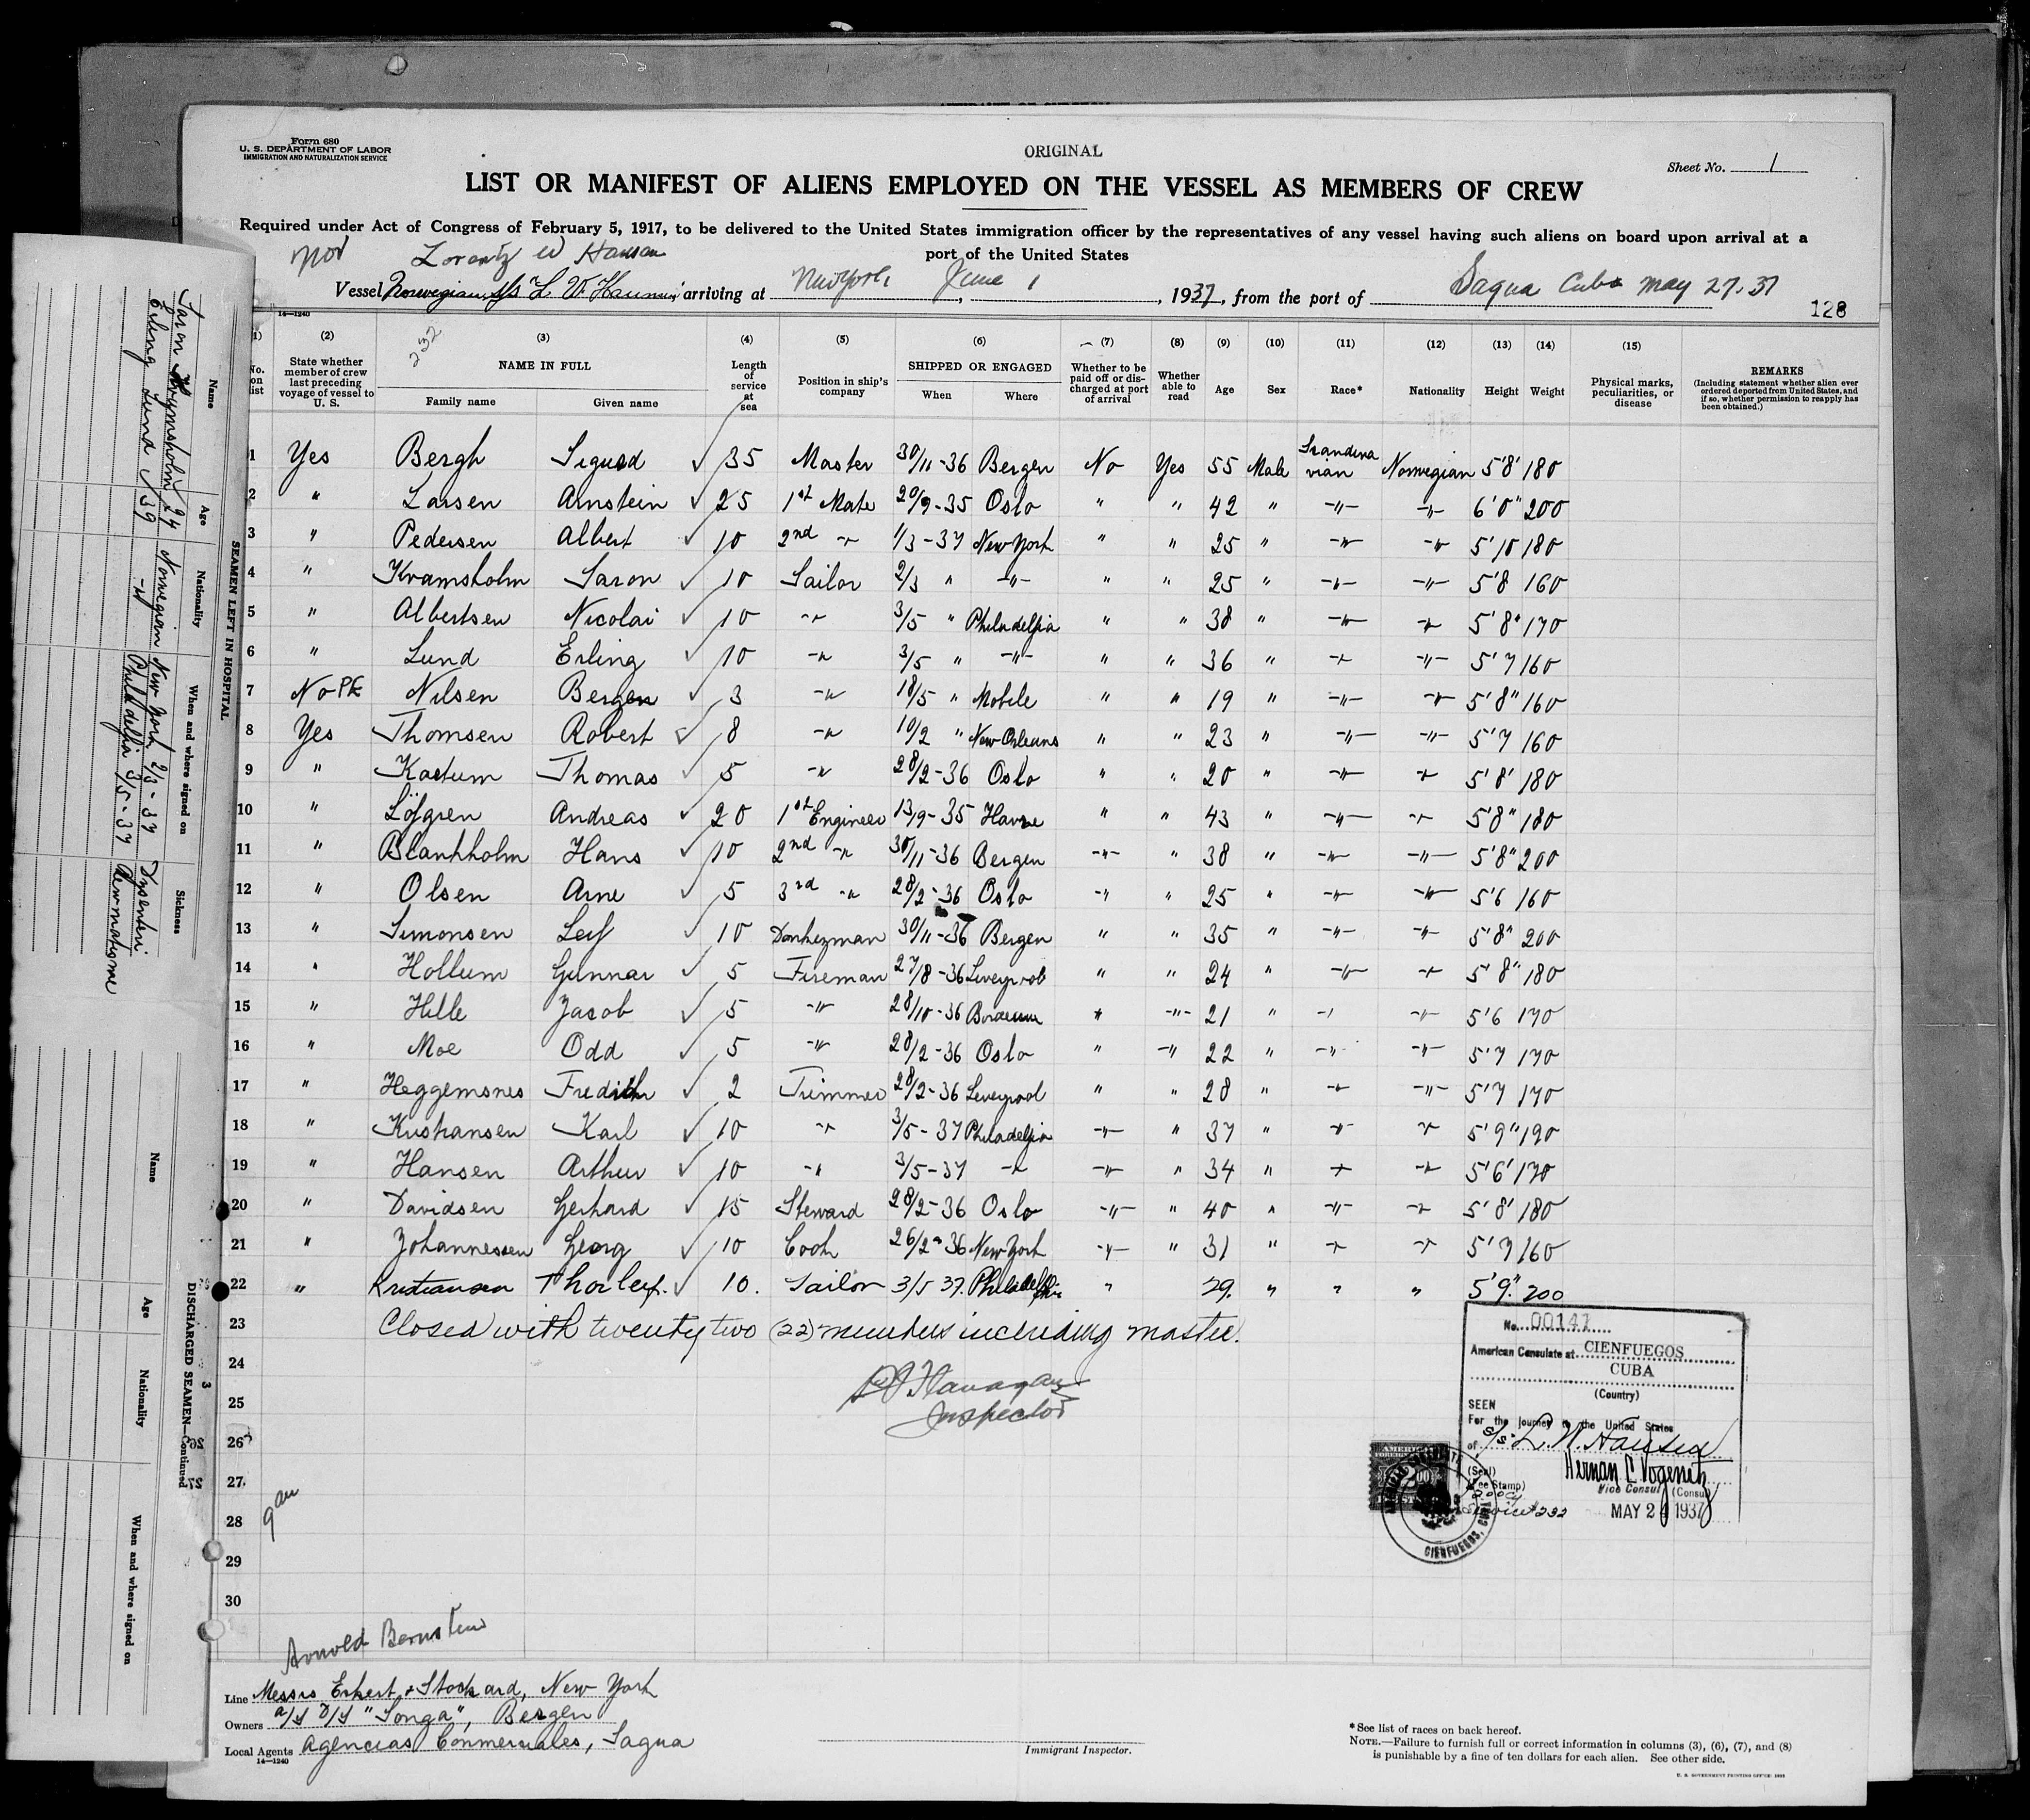 Form 680
U. S. DEPARTMENT OF LABOR
IMMIGRATION AND NATURALIZATION SERVICE
ORIGINAL
Sheet No. 1
LIST OR MANIFEST OF ALIENS EMPLOYED ON THE VESSEL AS MEMBERS OF CREW
Required under Act of Congress of February 5, 1917, to be delivered to the United States immigration officer by the representatives of any vessel having such aliens on board upon arrival at a
port of the United States
Nor Lorentz W Hansen
Vessel Norwegian s/s L. W. Hansen arriving at New York, June 1, 1937, from the port of Sagua Cuba May 27-37
128
14—1240
232
(1) (2) (3) (4) (5) (6) (7) (8) (9) (10) (11) (12) (13) (14) (15)
No. on list
State whether member of crew last preceding voyage of vessel to U. S.
NAME IN FULL
Family name Given name
Length of service at sea
Position in ship's company
SHIPPED OR ENGAGED
When Where
Whether to be paid off or discharged at port of arrival
Whether able to read
Age Sex Race* Nationality Height Weight
Physical marks, peculiarities, or disease
REMARKS
(Including statement whether alien ever ordered deported from United States, and if so, whether permission to reapply has been obtained.)
1 Yes Bergh Sigurd ✓ 35 Master 30/11-36 Bergen No Yes 55 Male Scandinavian Norwegian 5'8' 180
2 " Larsen Arnstein ✓ 25 1st Mate 20/9-35 Oslo " " 42 " -"- -"- 6'0" 200
3 " Pedersen Albert ✓ 10 2nd -"- 1/3-37 New York " " 25 " -"- -"- 5'10 180
4 " Kvamsholm Saron ✓ 10 Sailor 2/3 " -"- " " 25 " -"- -"- 5'8 160
5 " Albertsen Nicolai ✓ 10 -"- 3/5 " Philadelpia " " 38 " -"- -"- 5'8" 170
6 " Lund Erling ✓ 10 -"- 3/5 " -"- " " 36 " -"- -"- 5'7 160
7 No Nilsen Bergen ✓ 3 -"- 18/5 " Mobile " " 19 " -"- -"- 5'8" 160
8 Yes Thomsen Robert ✓ 8 -"- 10/2 " New Orleans " " 23 " -"- -"- 5'7 160
9 " Kastum Thomas ✓ 5 -"- 28/2-36 Oslo " " 20 " -"- -"- 5'8' 180
10 " Löfgren Andreas ✓ 20 1st Engineer 13/9-35 Havre " " 43 " -"- -"- 5'8" 180
11 " Blankholm Hans ✓ 10 2nd -"- 30/11-36 Bergen -"- " 38 " -"- -"- 5'8" 200
12 " Olsen Arne ✓ 5 3rd -"- 28/2-36 Oslo -"- " 25 " -"- -"- 5'6 160
13 " Simonsen Leif ✓ 10 Donkeyman 30/11-36 Bergen " " 35 " -"- -"- 5'8" 200
14 " Hollum Gunnar ✓ 5 Fireman 27/8-36 Leverpool " " 24 " -"- -"- 5'8" 180
15 " Hille Jacob ✓ 5 -"- 28/10-36 " -"- 21 " -"- -"- 5'6 170
16 " Moe Odd ✓ 5 -"- 28/2-36 Oslo " -"- 22 " -"- -"- 5'7 170
17 " Heggemsnes Fredrik ✓ 2 Trimmer 28/2-36 Leverpool " " 28 " -"- -"- 5'7 170
18 " Kristiansen Karl ✓ 10 -"- 3/5-37 Philadelpia -"- " 37 " -"- -"- 5'9" 190
19 " Hansen Arthur ✓ 10 -"- 3/5-37 -"- -"- " 34 " -"- -"- 5'6' 170
20 " Davidsen Gerhard ✓ 15 Steward 28/2-36 Oslo -"- " 40 " -"- -"- 5'8' 180
21 " Johannessen Georg ✓ 10 Cook 26/2-36 New York -"- " 31 " -"- -"- 5'7 160
22 " Kristiansen Thorleif. ✓ 10. Sailor 3/5 37. Philadelphia " 29. " " " 5'9" 200
23 Closed with twenty two (22) members including master.
24
25
26
27
28
29
30
Flanagan
Inspector
9 am
No. 00141
American Consulate at CIENFUEGOS
CUBA
(Country)
SEEN
For the journey to the United States
of S/S L. W. Hansen
(Seal)
(Fee Stamp)
Hernan C Vogenitz
Vice Consul (Consul)
Service 232
MAY 24 1937
CIENFUEGOS, CUBA
Arnold Bernstein
Line Messrs Eckert & Stockard, New York
Owners A/S D/S "Songa", Bergen
Local Agents Agencias Conmerciales, Sagua
14—1240
Immigrant Inspector.
*See list of races on back hereof.
NOTE.—Failure to furnish full or correct information in columns (3), (6), (7), and (8)
is punishable by a fine of ten dollars for each alien. See other side.
U. S. GOVERNMENT PRINTING OFFICE: 1935
SEAMEN LEFT IN HOSPITAL
Name Age Nationality When and where signed on Sickness
Saron Kvamsholm 24 Norwegian New York 2/3-37 Dysenteri
Erling Lund 39 -"- Philadelfia 3/5-37
DISCHARGED SEAMEN—Continued
3
Name Age Nationality When and where signed on